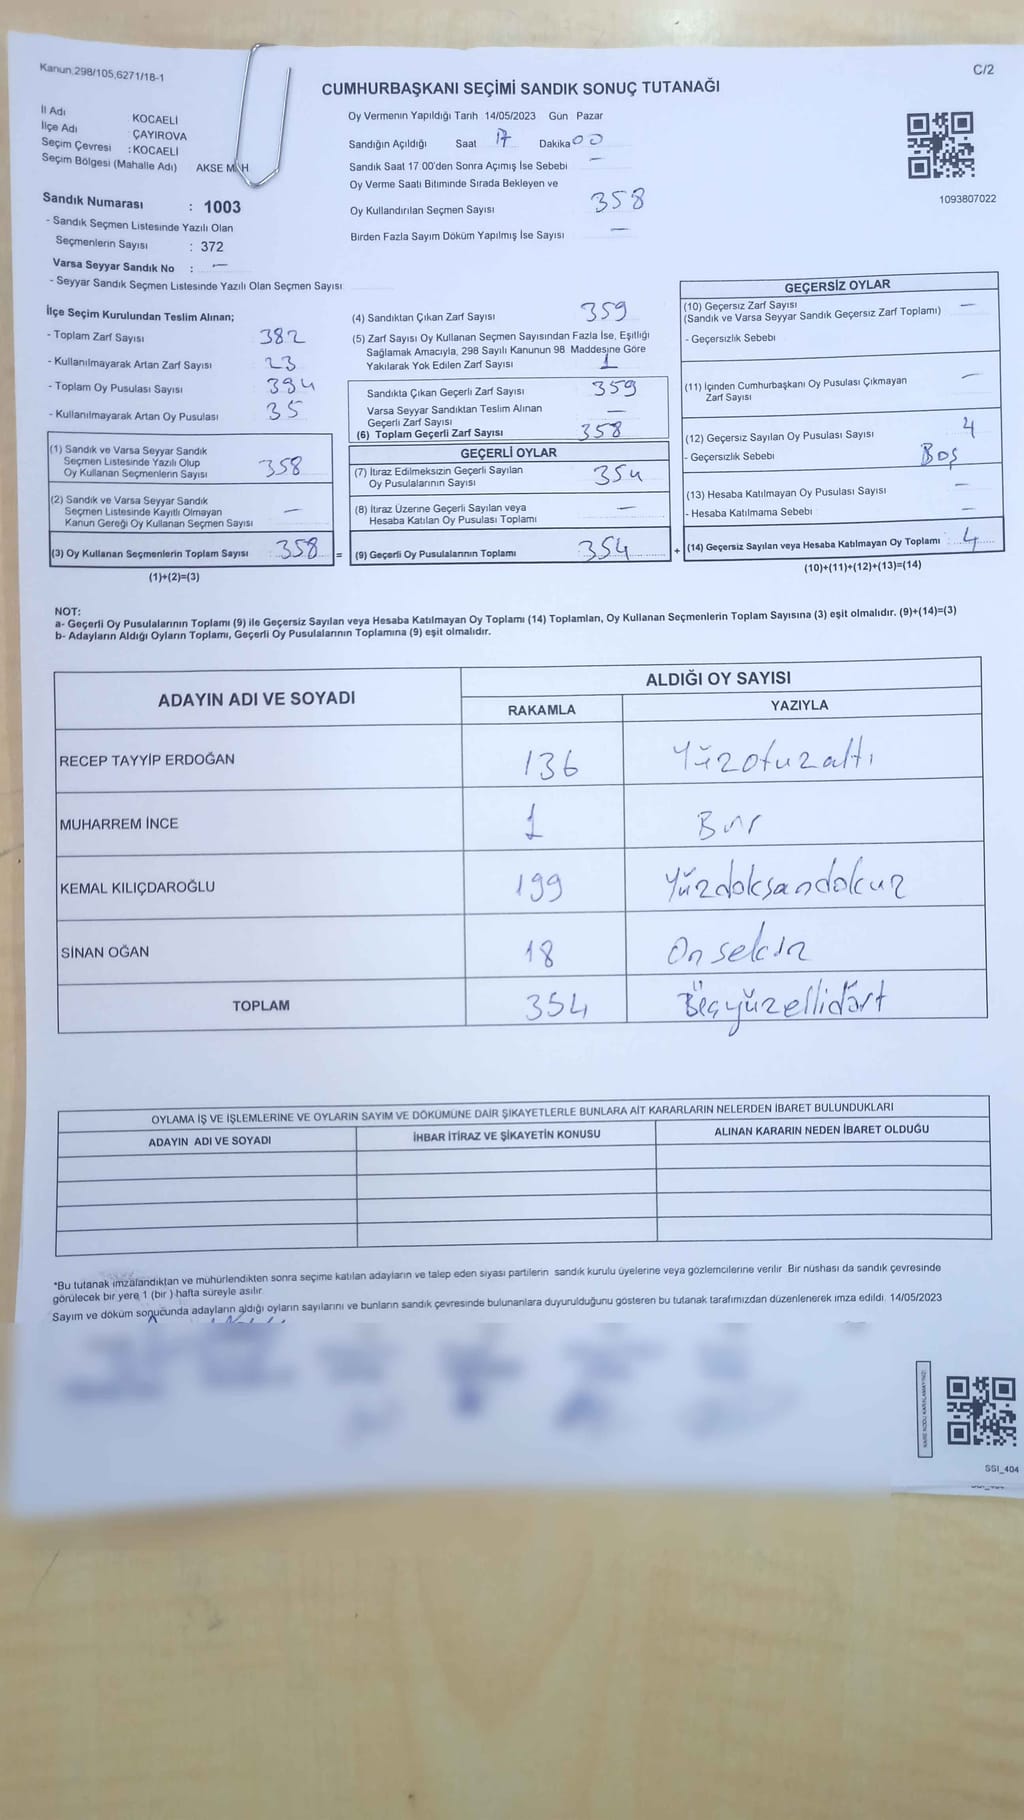 Kanun,298/105,6271/18-1
C/2
CUMHURBAŞKANI SEÇİMİ SANDIK SONUÇ TUTANAĞI
İl Adı KOCAELİ
İlçe Adı : ÇAYIROVA
Seçim Çevresi : KOCAELİ
Seçim Bölgesi (Mahalle Adı) AKSE MAH
Sandık Numarası : 1003
- Sandık Seçmen Listesinde Yazılı Olan
Seçmenlerin Sayısı : 372
Varsa Seyyar Sandık No : —
- Seyyar Sandık Seçmen Listesinde Yazılı Olan Seçmen Sayısı
Oy Vermenin Yapıldığı Tarih 14/05/2023 Gün Pazar
Sandığın Açıldığı Saat 17 Dakika 00
Sandık Saat 17 00'den Sonra Açımış İse Sebebi —
Oy Verme Saati Bitiminde Sırada Bekleyen ve
Oy Kullandırılan Seçmen Sayısı 358
Birden Fazla Sayım Döküm Yapılmış İse Sayısı —
1093807022
İlçe Seçim Kurulundan Teslim Alınan;
- Toplam Zarf Sayısı 382
- Kullanılmayarak Artan Zarf Sayısı 23
- Toplam Oy Pusulası Sayısı 394
- Kullanılmayarak Artan Oy Pusulası 35
(1) Sandık ve Varsa Seyyar Sandık
Seçmen Listesinde Yazılı Olup
Oy Kullanan Seçmenlerin Sayısı 358
(2) Sandık ve Varsa Seyyar Sandık
Seçmen Listesinde Kayıtlı Olmayan
Kanun Gereği Oy Kullanan Seçmen Sayısı —
(3) Oy Kullanan Seçmenlerin Toplam Sayısı : 358 =
(1)+(2)=(3)
(4) Sandıktan Çıkan Zarf Sayısı 359
(5) Zarf Sayısı Oy Kullanan Seçmen Sayısından Fazla İse, Eşitliği
Sağlamak Amacıyla, 298 Sayılı Kanunun 98 Maddesine Göre
Yakılarak Yok Edilen Zarf Sayısı 1
Sandıkta Çıkan Geçerli Zarf Sayısı 359
Varsa Seyyar Sandıktan Teslim Alınan
Geçerli Zarf Sayısı —
(6) Toplam Geçerli Zarf Sayısı 358
GEÇERLİ OYLAR
(7) İtiraz Edilmeksizin Geçerli Sayılan
Oy Pusulalarının Sayısı 354
(8) İtiraz Üzerine Geçerli Sayılan veya
Hesaba Katılan Oy Pusulası Toplamı —
(9) Geçerli Oy Pusulalarının Toplamı 354 +
GEÇERSİZ OYLAR
(10) Geçersiz Zarf Sayısı —
(Sandık ve Varsa Seyyar Sandık Geçersiz Zarf Toplamı)
- Geçersizlik Sebebi
(11) İçinden Cumhurbaşkanı Oy Pusulası Çıkmayan
Zarf Sayısı —
(12) Geçersiz Sayılan Oy Pusulası Sayısı 4
- Geçersizlik Sebebi Boş
(13) Hesaba Katılmayan Oy Pusulası Sayısı —
- Hesaba Katılmama Sebebi —
(14) Geçersiz Sayılan veya Hesaba Katılmayan Oy Toplamı : 4
(10)+(11)+(12)+(13)=(14)
NOT:
a- Geçerli Oy Pusulalarının Toplamı (9) ile Geçersiz Sayılan veya Hesaba Katılmayan Oy Toplamı (14) Toplamları, Oy Kullanan Seçmenlerin Toplam Sayısına (3) eşit olmalıdır. (9)+(14)=(3)
b- Adayların Aldığı Oyların Toplamı, Geçerli Oy Pusulalarının Toplamına (9) eşit olmalıdır.
ADAYIN ADI VE SOYADI ALDIĞI OY SAYISI
RAKAMLA YAZIYLA
RECEP TAYYİP ERDOĞAN 136 Yüzotuzaltı
MUHARREM İNCE 1 Bir
KEMAL KILIÇDAROĞLU 199 Yüzdoksandokuz
SİNAN OĞAN 18 Onsekiz
TOPLAM 354 Üçyüzellidört
OYLAMA İŞ VE İŞLEMLERİNE VE OYLARIN SAYIM VE DÖKÜMÜNE DAİR ŞİKAYETLERLE BUNLARA AİT KARARLARIN NELERDEN İBARET BULUNDUKLARI
ADAYIN ADI VE SOYADI İHBAR İTİRAZ VE ŞİKAYETİN KONUSU ALINAN KARARIN NEDEN İBARET OLDUĞU
*Bu tutanak imzalandıktan ve mühürlendikten sonra seçime katılan adayların ve talep eden siyasi partilerin sandık kurulu üyelerine veya gözlemcilerine verilir Bir nüshası da sandık çevresinde
görülecek bir yere 1 (bir ) hafta süreyle asılır.
Sayım ve döküm sonucunda adayların aldığı oyların sayılarını ve bunların sandık çevresinde bulunanlara duyurulduğunu gösteren bu tutanak tarafımızdan düzenlenerek imza edildi. 14/05/2023
SSI_404